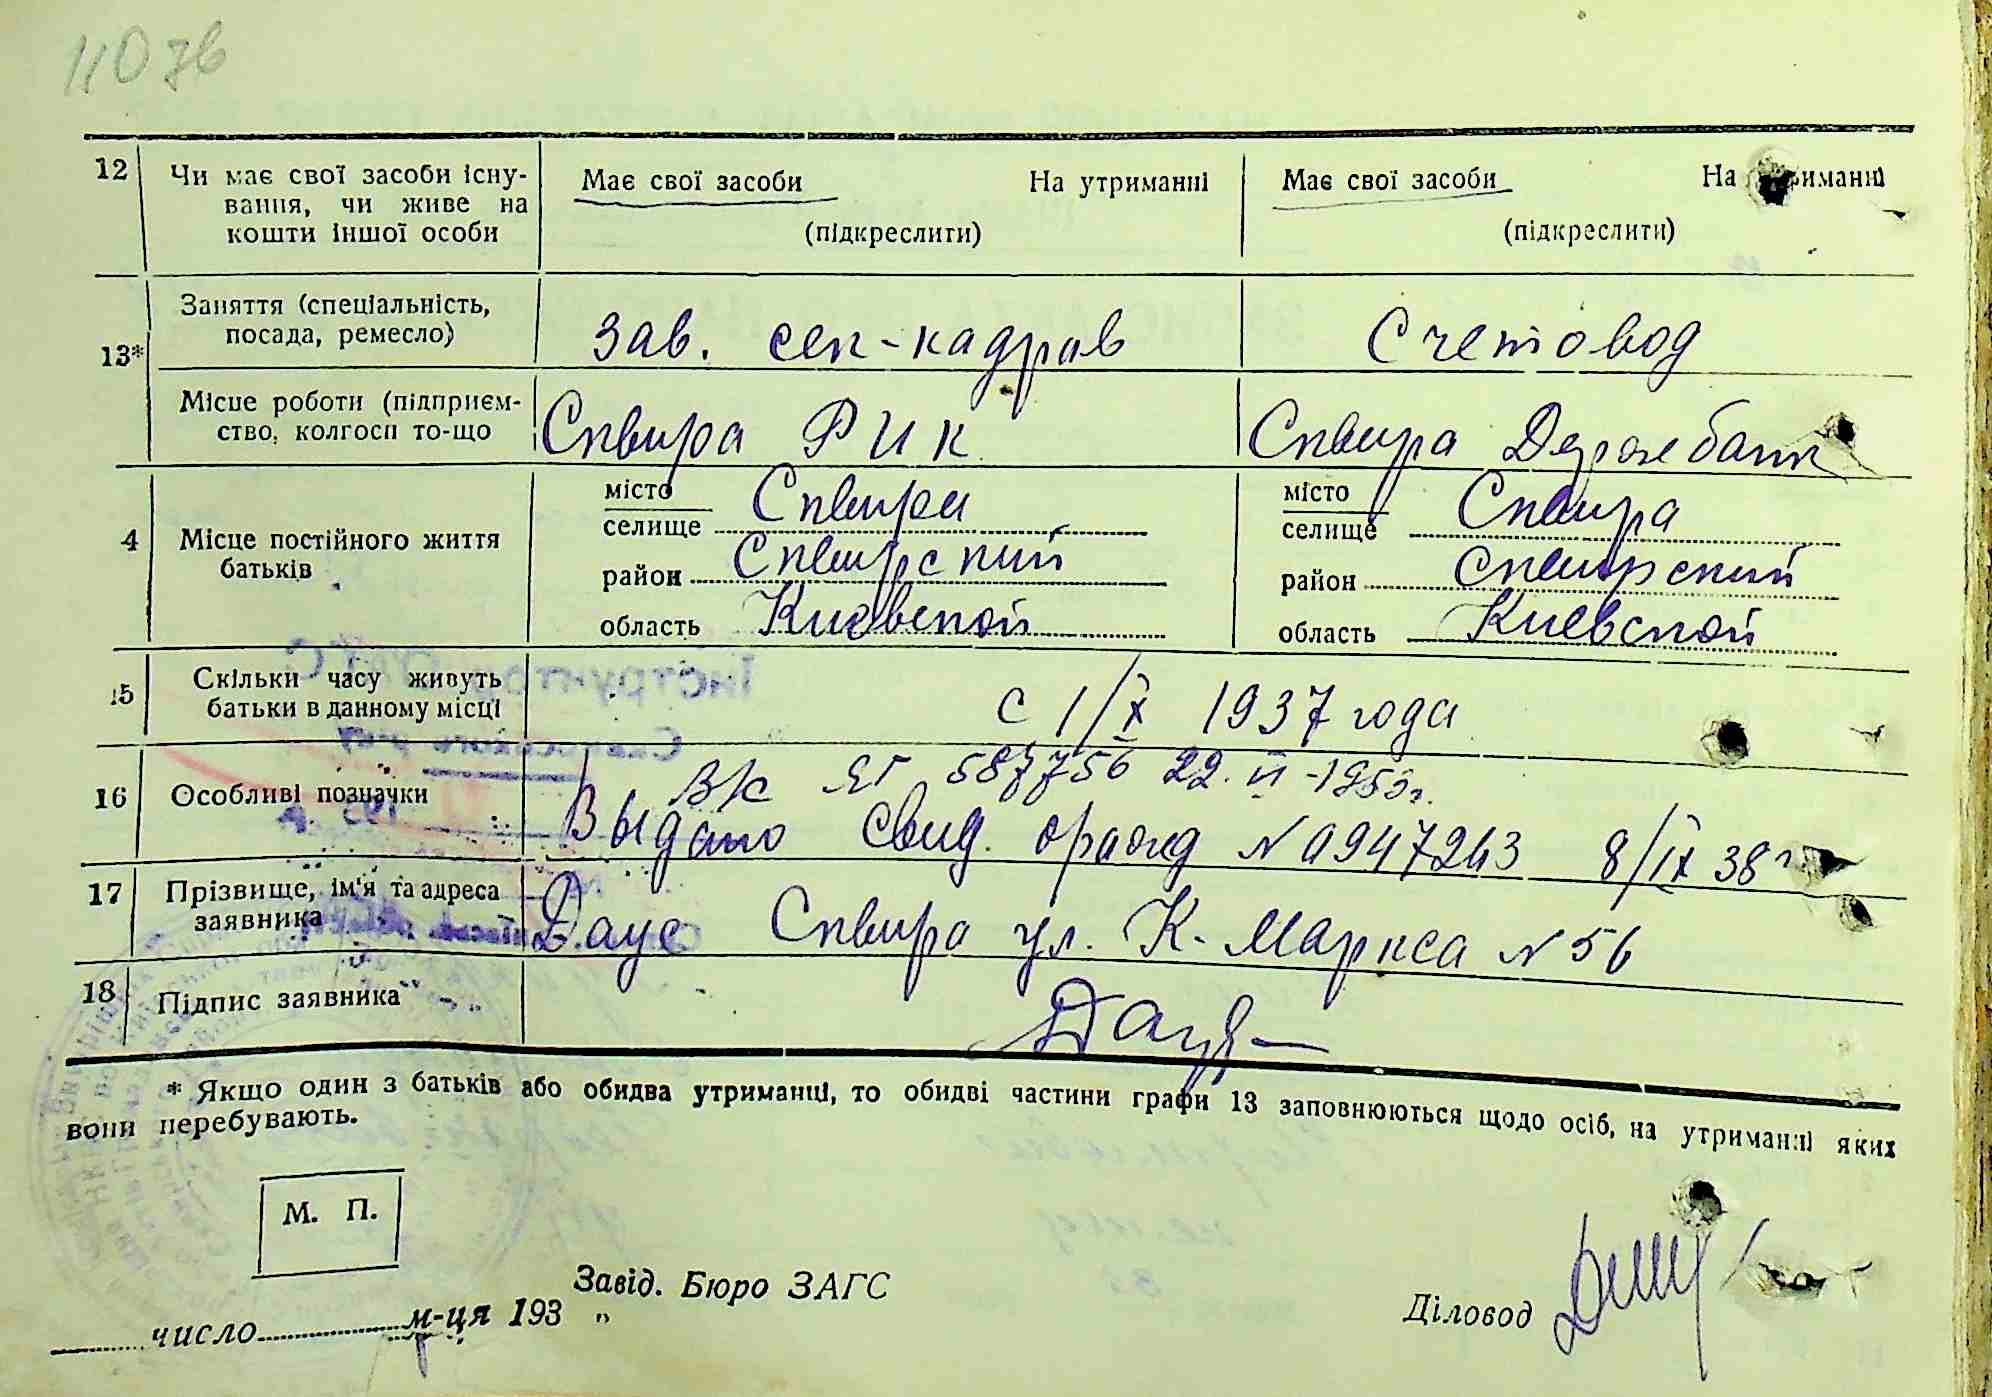 110 зв
12 Чи має свої засоби існу- Має свої засоби На утриманні Має свої засоби На утриманні
вання, чи живе на
кошти іншої особи (підкреслити) (підкреслити)
Заняття (спеціальність,
13* посада, ремесло) Зав. сек-кадрав Счетовод
Місце роботи (підприєм-
ство, колгосп то-що Сквира РИК Сквира Держбанк
місто Сквира місто Сквира
селище селище
4 Місце постійного життя
батьків
район Сквирский район Сквирский
область Киевской область Киевской
15 Скільки часу живуть
батьки в данному місці с 1/X 1937 года
ВК ЯГ 587756 22. VI -1953г.
16 Особливі позначки Выдано свид. о ражд N 0947243 8/IX 38 г
17 Прізвище, ім'я та адреса
заявника Даус Сквира ул. К. Маркса N 56
18 Підпис заявника Дауз
* Якщо один з батьків або обидва утриманці, то обидві частини графи 13 заповнюються щодо осіб, на утриманні яких
вони перебувають.
М. П.
Завід. Бюро ЗАГС
число м-ця 193 "
Діловод